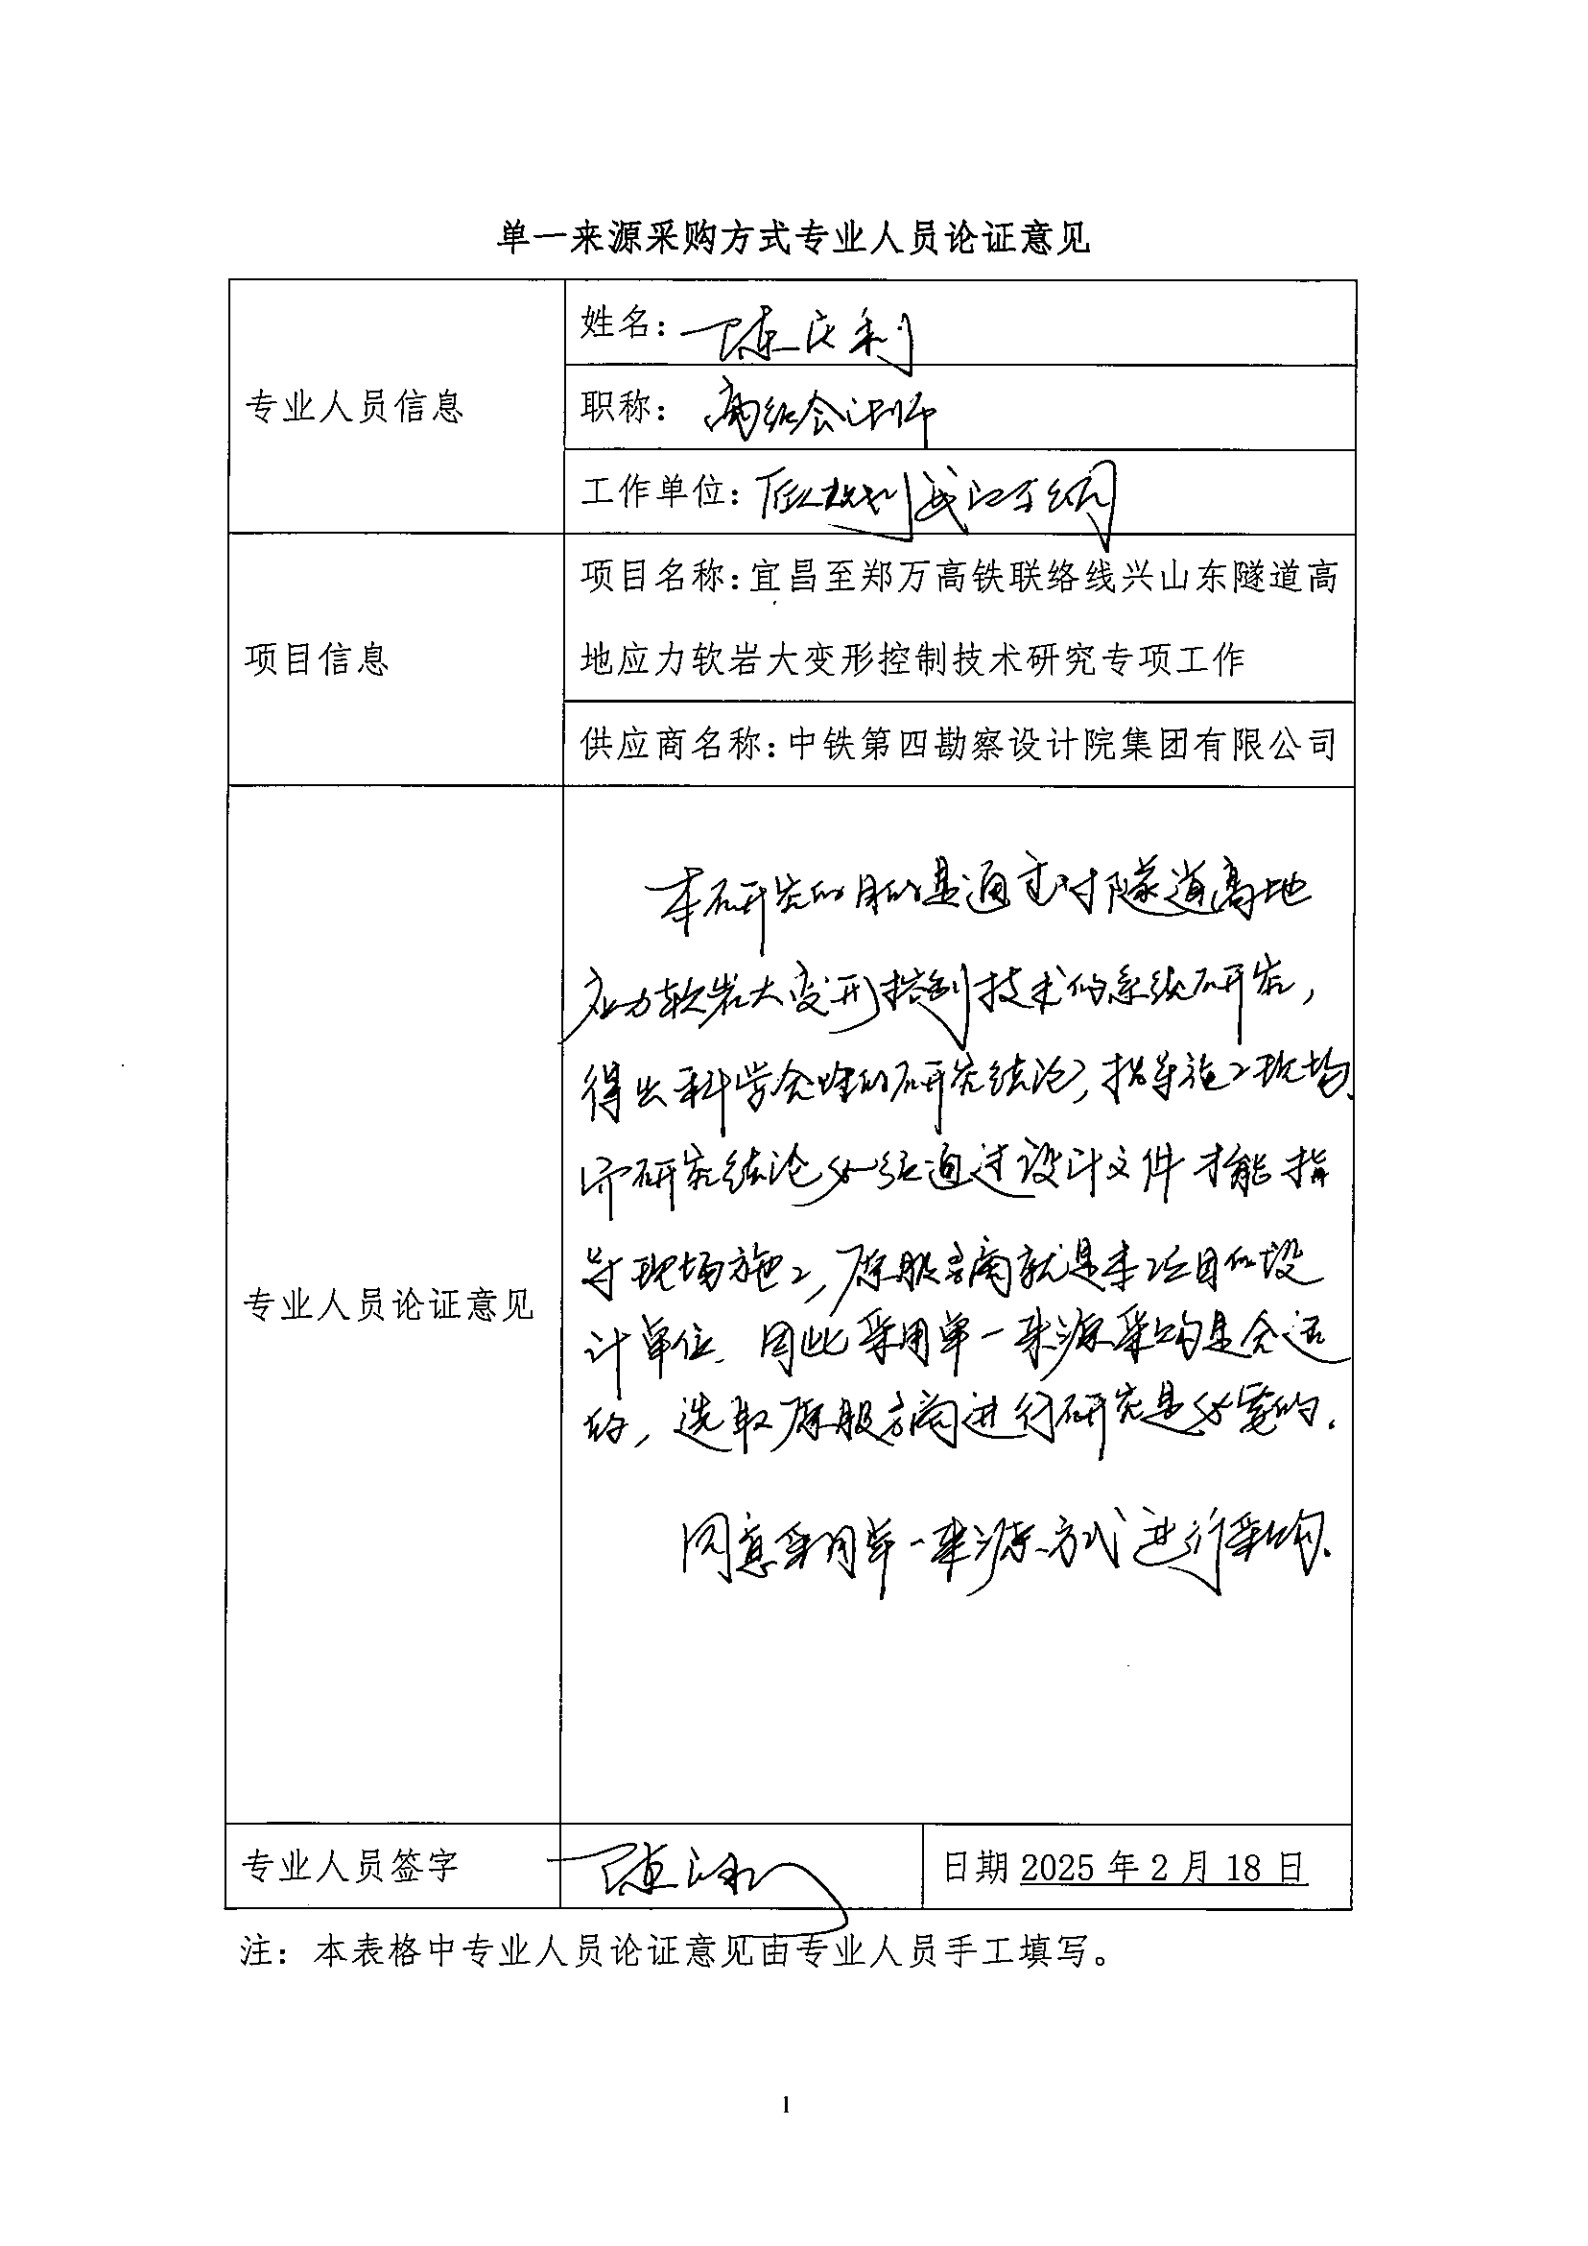 单一来源采购方式专业人员论证意见
专业人员信息
姓名：陈庆利
职称：高级会计师
工作单位：
项目信息
项目名称：宜昌至郑万高铁联络线兴山东隧道高
地应力软岩大变形控制技术研究专项工作
供应商名称：中铁第四勘察设计院集团有限公司
专业人员论证意见
本研究的目的是通过对隧道高地
应力软岩大变形控制技术的系统研究，
得出科学合理的研究结论，指导施工现场。
而研究结论必须通过设计文件才能指
导现场施工，原服务商就是本项目的设
计单位。因此采用单一来源采购是合适
的，选取原服务商进行研究是必要的。
同意采用单一来源方式进行采购。
专业人员签字
陈庆利
日期 2025 年 2 月 18 日
注：本表格中专业人员论证意见由专业人员手工填写。
1